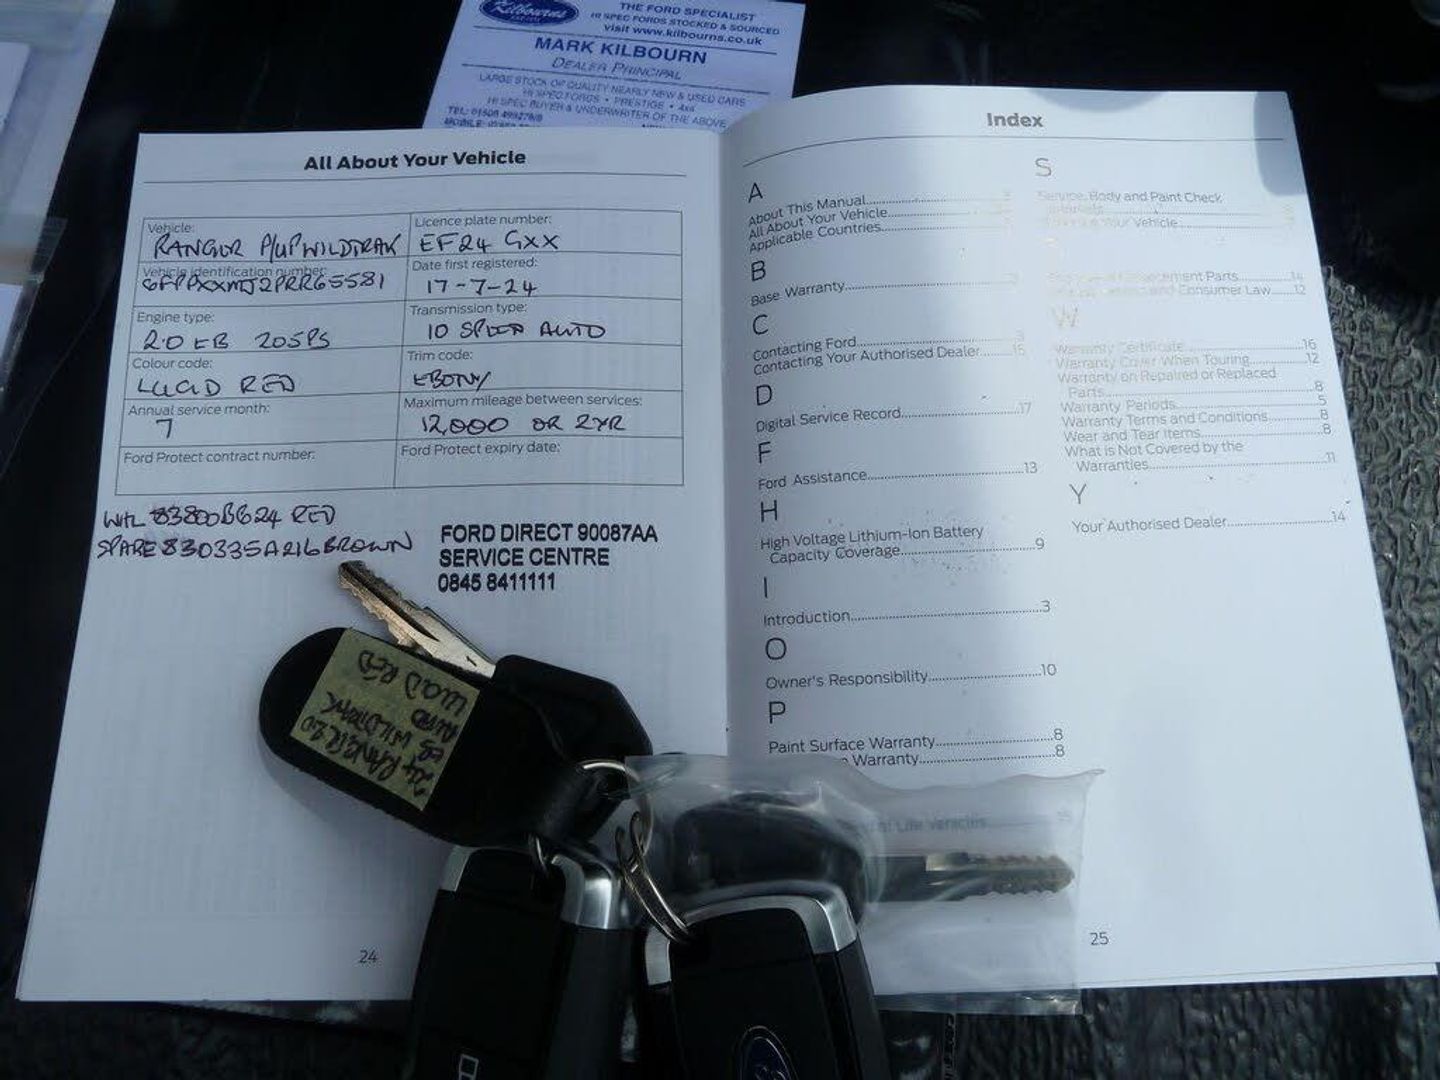 Kilbourns
THE FORD SPECIALIST
HI SPEC FORDS STOCKED & SOURCED
visit www.kilbourns.co.uk
MARK KILBOURN
DEALER PRINCIPAL
LARGE STOCK OF QUALITY NEARLY NEW & USED CARS
HI SPEC FORDS • PRESTIGE • 4x4
HI SPEC BUYER & UNDERWRITER OF THE ABOVE
TEL: 01508
MOBILE:
All About Your Vehicle
Vehicle:
RANGER P/UP WILDTRAK
Licence plate number:
EF24 GXX
Vehicle identification number:
6FPPXXMJ2PRR65581
Date first registered:
17-7-24
Engine type:
2.0 EB 205PS
Transmission type:
10 SPEED AUTO
Colour code:
LUCID RED
Trim code:
EBONY
Annual service month:
7
Maximum mileage between services:
12,000 OR 2YR
Ford Protect contract number:
Ford Protect expiry date:
WHL 83800BG24 RED
SPARE 830335A216 BROWN
FORD DIRECT 90087AA
SERVICE CENTRE
0845 8411111
24 RANGER 2.0
EB WILDTRAK
AUTO
LUCID RED
24
Index
A
About This Manual
All About Your Vehicle
Applicable Countries
B
Base Warranty
C
Contacting Ford
Contacting Your Authorised Dealer 15
D
Digital Service Record 17
F
Ford Assistance 13
H
High Voltage Lithium-Ion Battery
Capacity Coverage 9
I
Introduction 3
O
Owner's Responsibility 10
P
Paint Surface Warranty 8
Warranty 8
of Life Vehicles
S
Service, Body and Paint Check
Your Vehicle
Parts 14
and Consumer Law 12
W
Warranty Certificate 16
Warranty Cover When Touring 12
Warranty on Repaired or Replaced
Parts 8
Warranty Periods 5
Warranty Terms and Conditions 8
Wear and Tear Items 8
What is Not Covered by the
Warranties 11
Y
Your Authorised Dealer 14
25